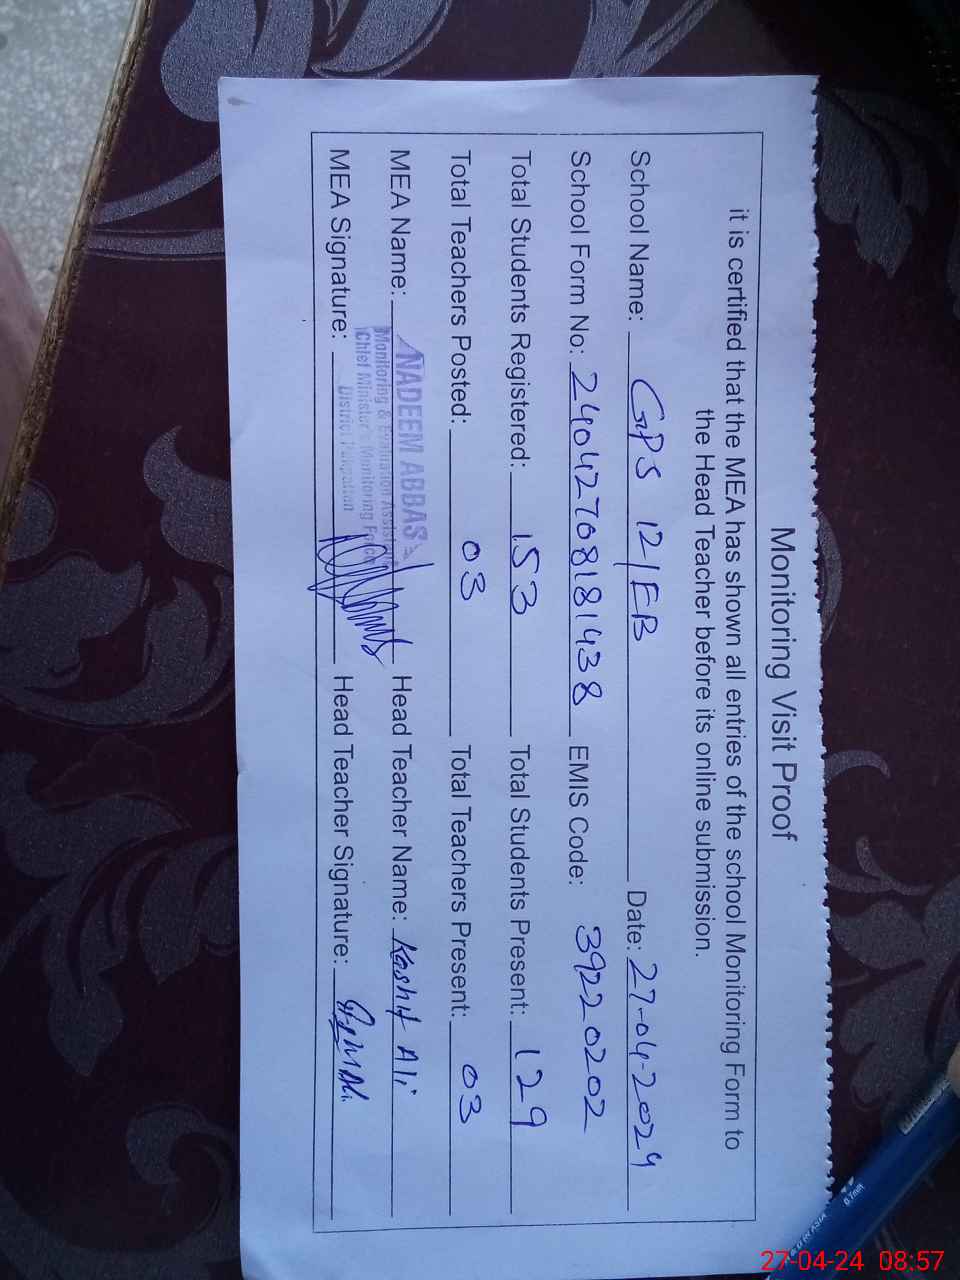 Monitoring Visit Proof
it is certified that the MEA has shown all entries of the school Monitoring Form to
the Head Teacher before its online submission.
School Name: GPS 12/EB Date: 27-04-2024
School Form No: 24042708181438 EMIS Code: 39220202
Total Students Registered: 153 Total Students Present: 129
Total Teachers Posted: 03 Total Teachers Present: 03
MEA Name: NADEEM ABBAS Head Teacher Name: Kashif Ali
Monitoring & Evaluation Assistant
Chief Minister's Monitoring Force
District Pakpattan
MEA Signature: Head Teacher Signature:
0.7mm
27-04-24 08:57